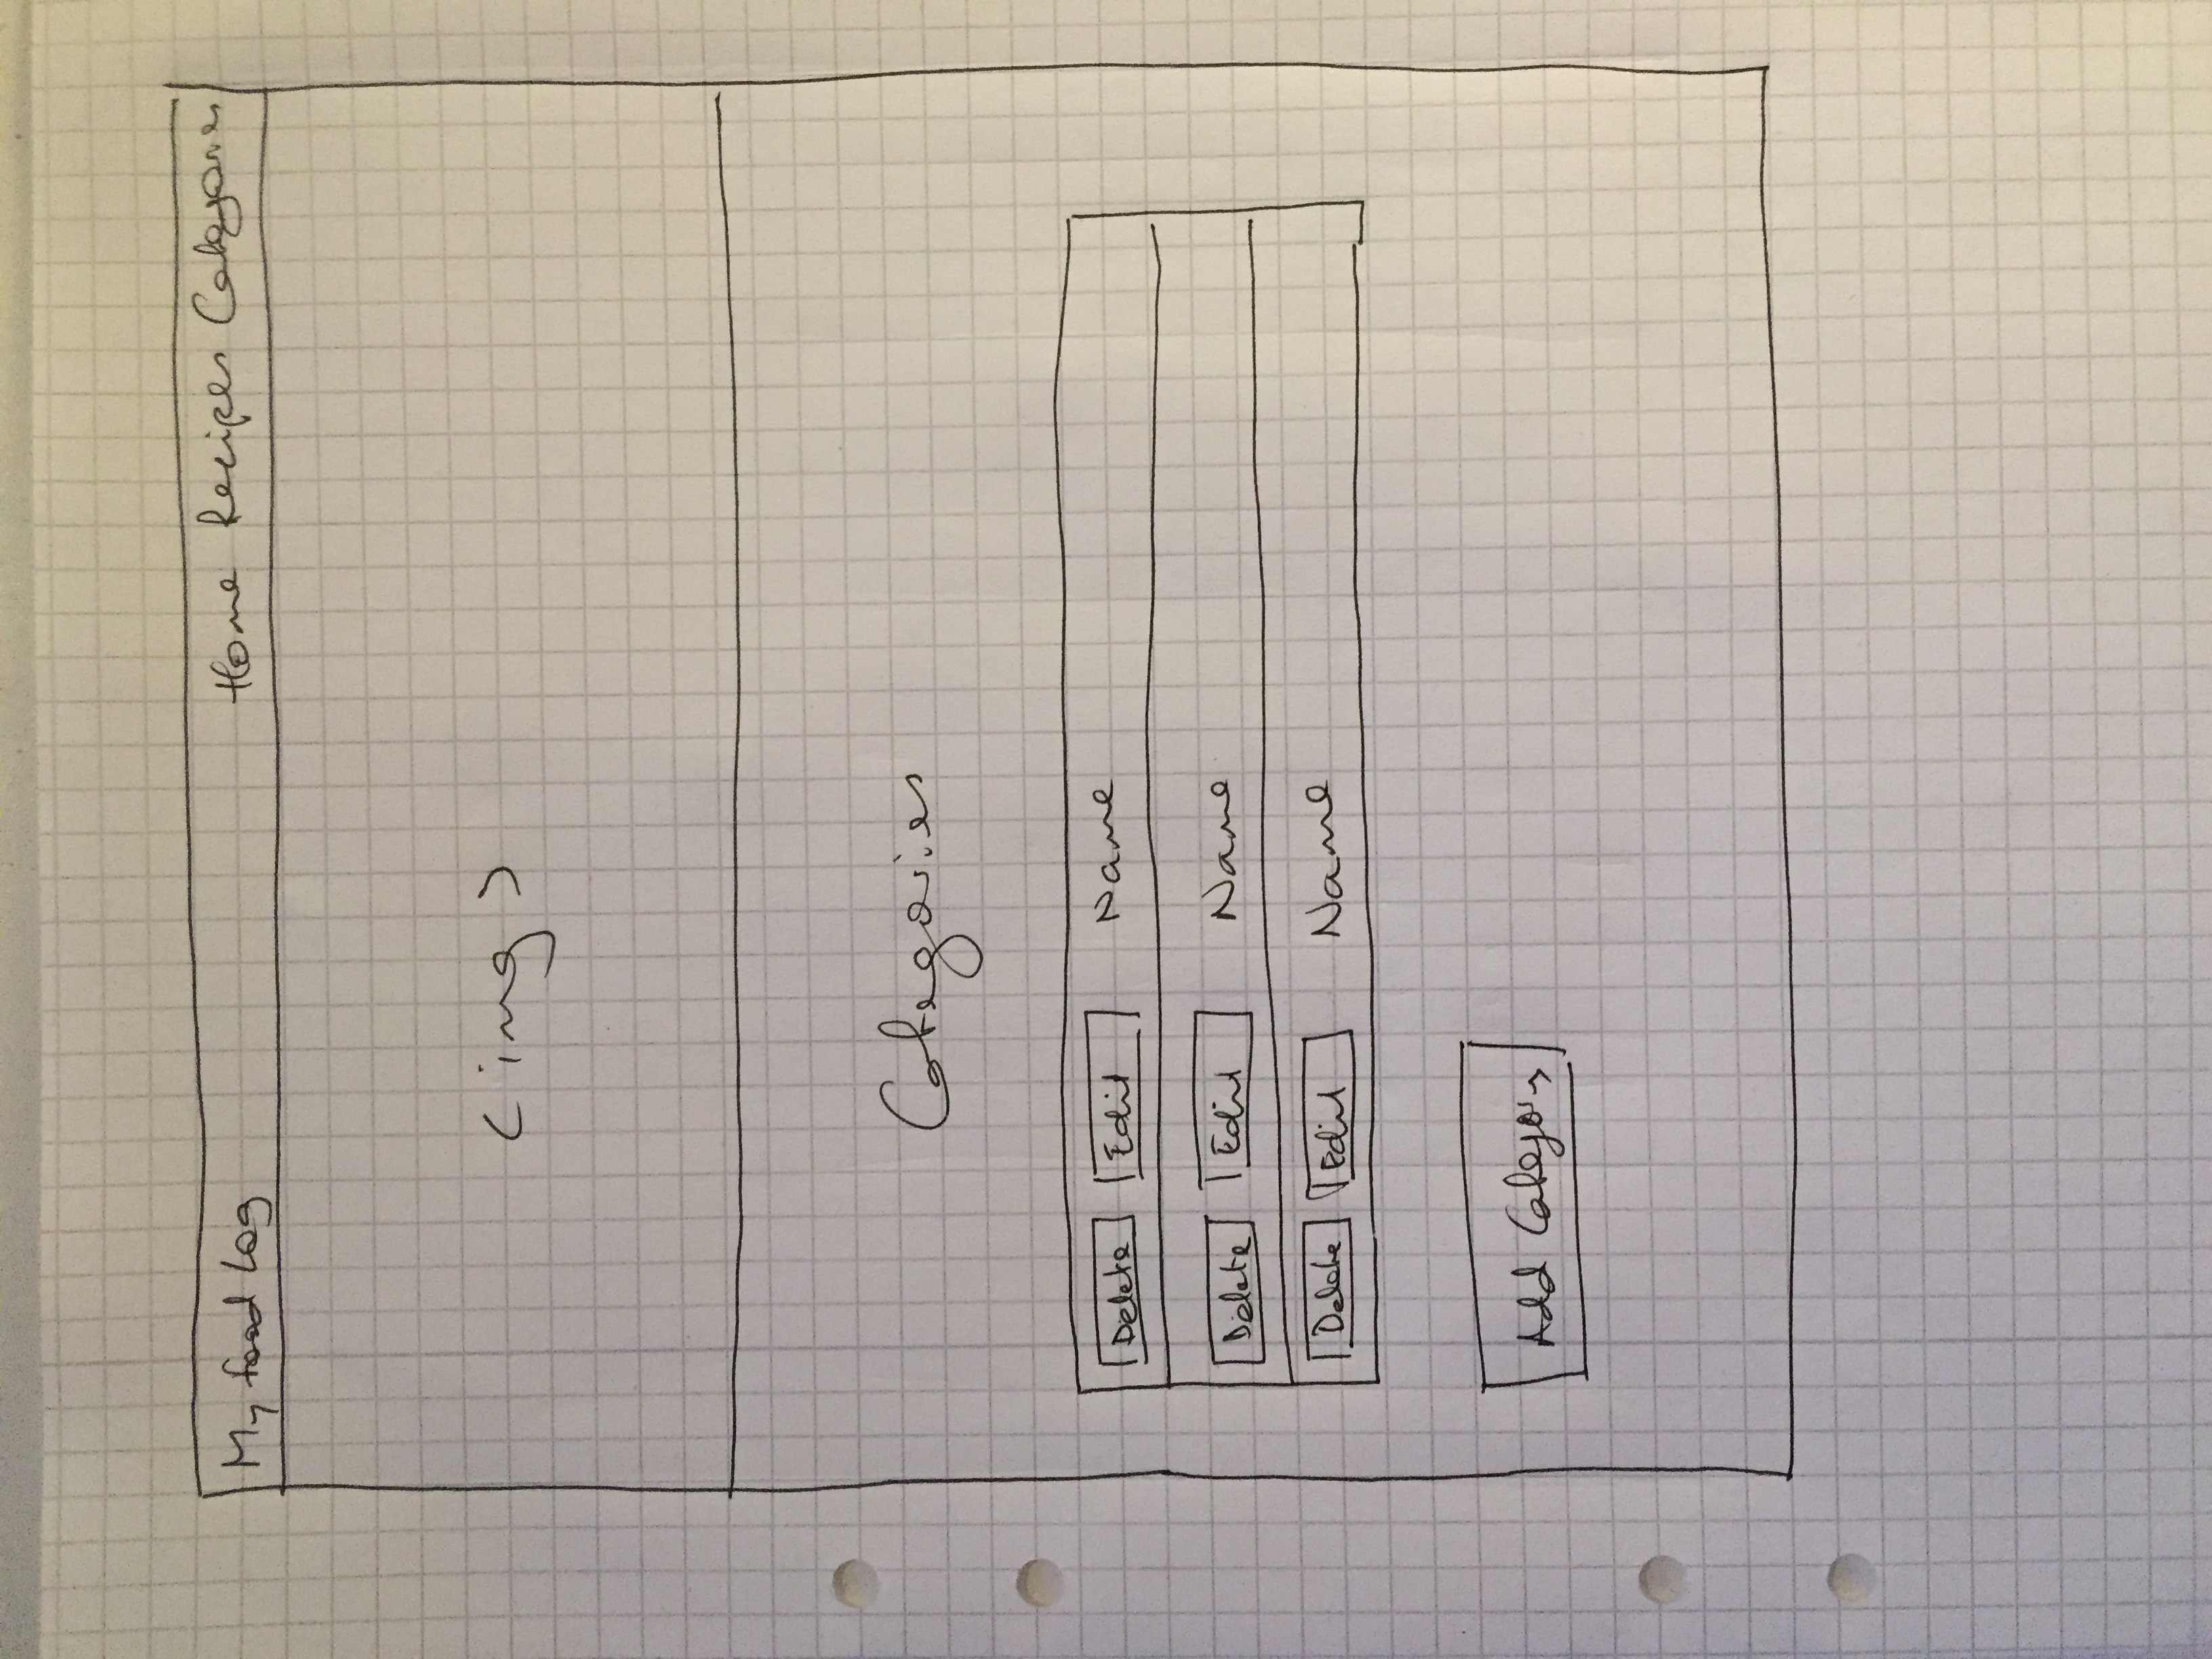 My food Log Home Recipes Categories
(img)
Categories
Delete Edit Name
Delete Edit Name
Delete Edit Name
Add Category